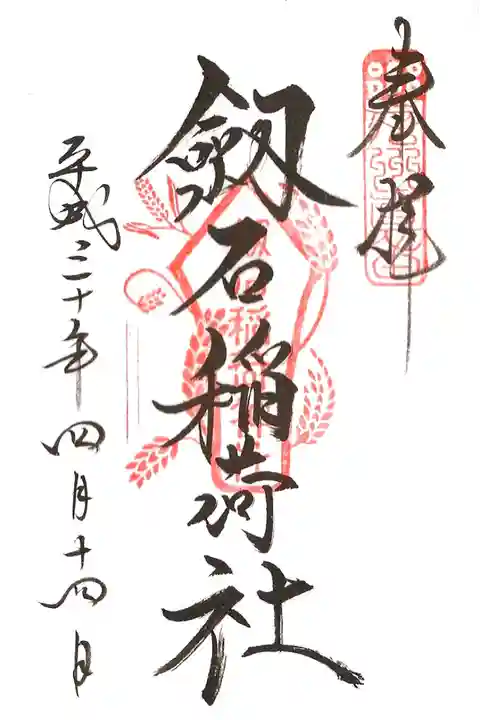 奉拝
劒石稲荷社
平成三十年四月十四日